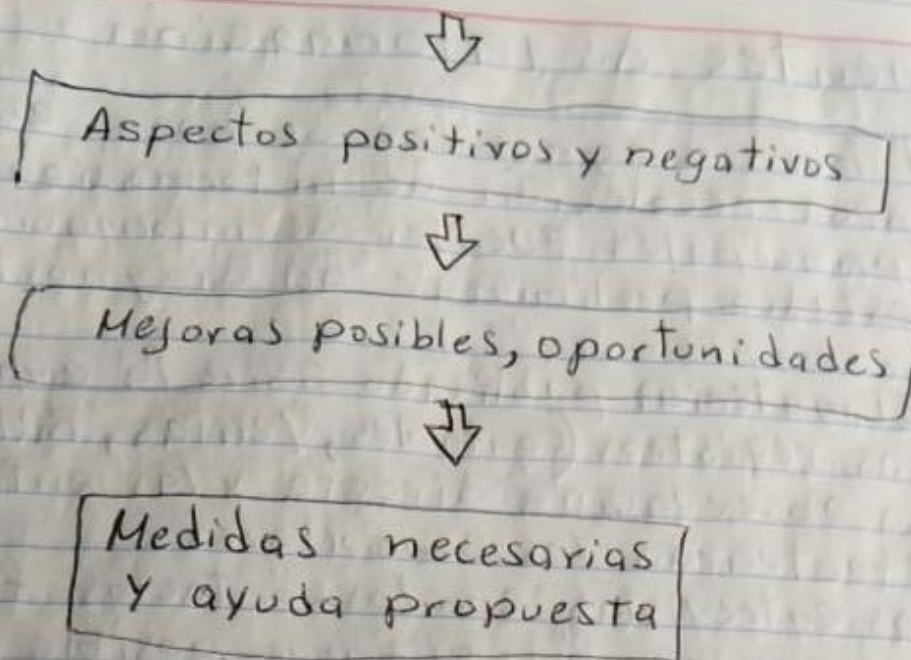 Aspectos positivos y negativos
Mejoras posibles, oportunidades
Medidas necesarias
y ayuda propuesta